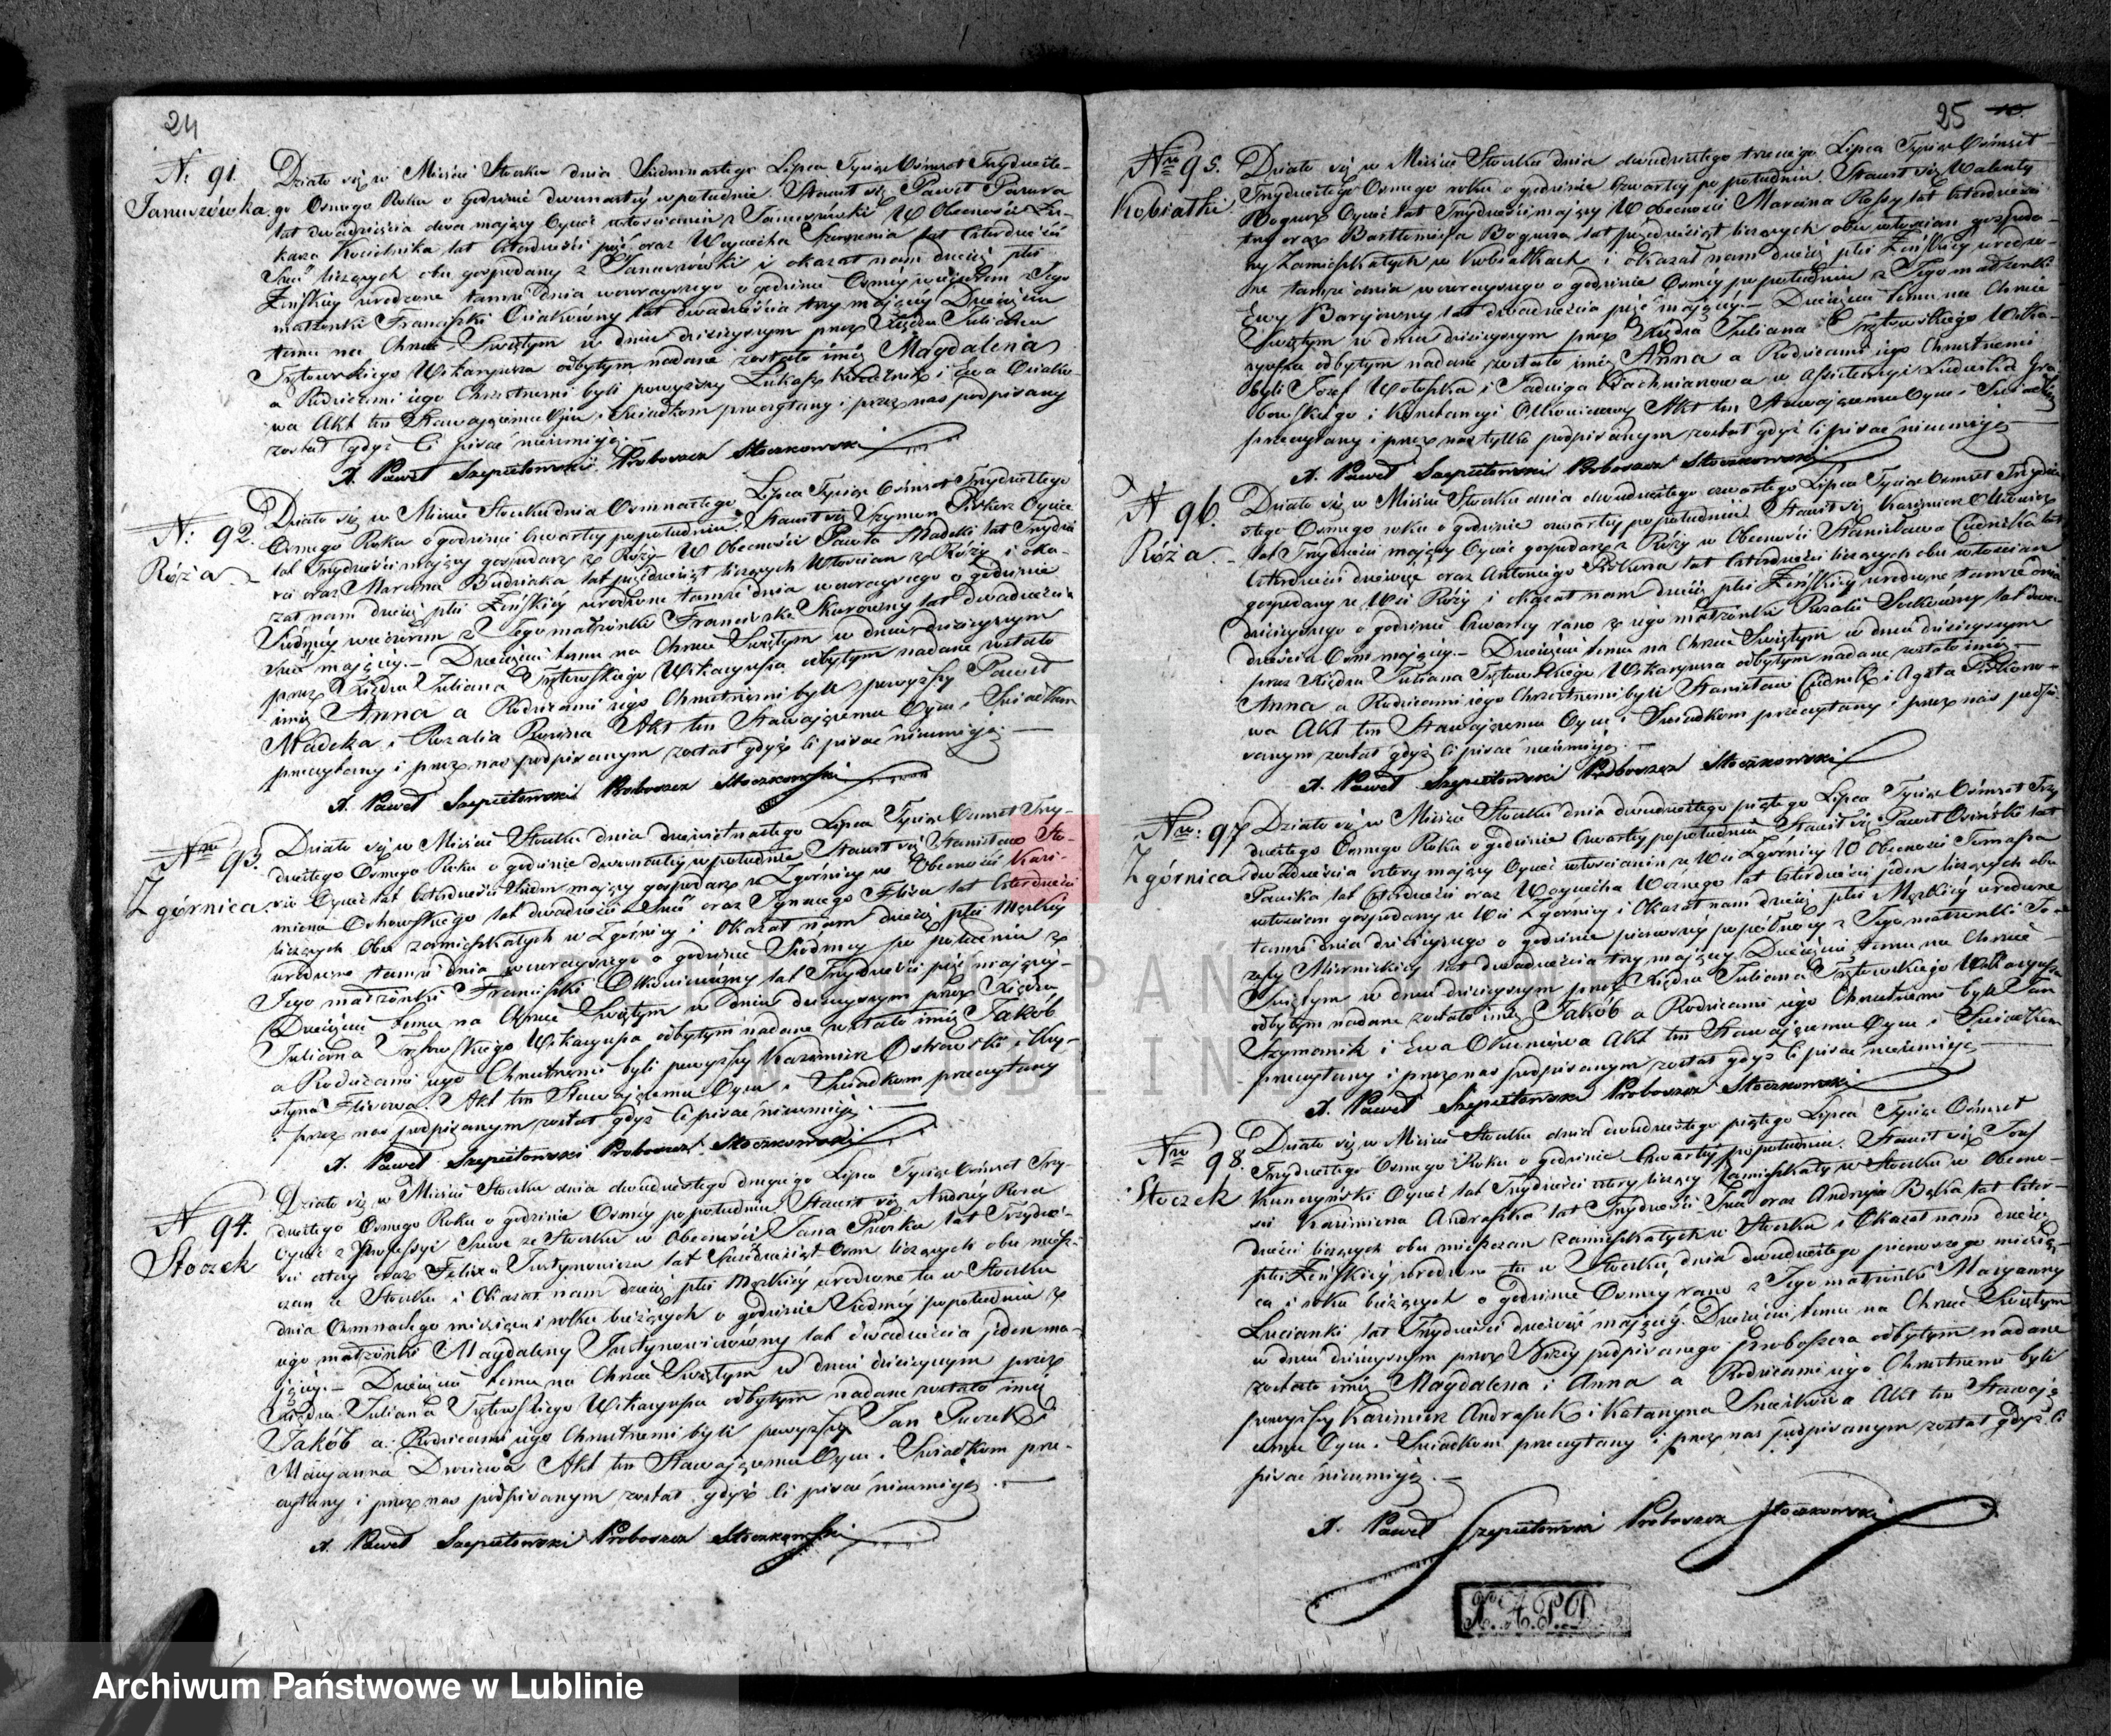 24
N: 91.
Januszówka.
Działo się w Mieście Stoczku dnia Siedmnastego Lipca Tysiąc Ośmset Trzydzieste-
go Osmego Roku o godzinie dwunastej w południe Stawił się Paweł
lat dwadzieścia dwa mający Oyciec włościanin z Januszówki W Obecności Łu-
kasza Kocielnika lat Czterdzieści pięć oraz Woyciecha lat Czterdzieści
liczących obu gospodarzy z Januszówki i okazał nam dziecię płci
Żeńskiey urodzone tamże dnia wczorayszego o godzinie Osmey wieczorem z Jego
małżonki Franciszki Osiakowny lat dwadzieścia trzy mającey Dziecięciu
temu na Chrzcie Świętym w dniu dzisieyszym przez Xiędza Juliana
Trętowskiego Wikaryusza odbytym nadane zostało imię Magdalena
a Rodzicami iego Chrzestnemi byli powyższy Łukasz i Ewa Osiako-
wa Akt ten Stawającemu Oycu i Świadkom przeczytany i przez nas podpisany
został gdyż Ci pisać nieumieją.
X. Paweł Szepietowski Proboszcz Stoczkowski
N: 92.
Róża.
Działo się w Mieście Stoczku dnia Osmnastego Lipca Tysiąc Ośmset Trzydziestego
Osmego Roku o godzinie Czwartey popołudniu. Stawił się Szymon Oyciec
lat Trzydzieści mający gospodarz z Róży W Obecności Pawła Madeki lat Trzydzie-
ści oraz Marcina Budziaka lat pięćdziesiąt liczących Włościan z Róży i oka-
zał nam dziecię płci Żeńskiey urodzone tamże dnia wczorayszego o godzinie
Siódmey wieczorem z Jego małżonki Franciszki Skarowny lat dwadzieścia
mającey. – Dziecięciu temu na Chrzcie Świętym w dniu dzisieyszym
przez Xiędza Juliana Trętowskiego Wikaryusza odbytym nadane zostało
imię Anna a Rodzicami iego Chrzestnemi byli powyższy Paweł
Madeka i Rozalia Akt ten Stawającemu Oycu i Świadkom
przeczytany i przez nas podpisanym został gdyż Ci pisać nieumieją.
X. Paweł Szepietowski Proboszcz Stoczkowski
Nro 93.
Zgórnica.
Działo się w Mieście Stoczku dnia dziewiętnastego Lipca Tysiąc Ośmset Trzy-
dziestego Osmego Roku o godzinie dwunastey w południe Stawił się Stanisław
Oyciec lat Czterdzieści Siedm mający gospodarz z Zgórnicy w Obecności Kazi-
mierza lat dwadzieścia oraz Flisa lat Czterdzieści
liczących Obu zamieszkałych w Zgórnicy i Okazał nam dziecię płci Męzkiey
urodzone tamże dnia wczorayszego o godzinie Siódmey po południu z
Jego małżonki Franciszki lat Trzydzieści pięć mającey –
Dziecięciu temu na Chrzcie Świętym w dniu dzisieyszym przez Xiędza
Juliana Trętowskiego Wikaryusza odbytym nadane zostało imię Jakób
a Rodzicami iego Chrzestnemi byli powyższy Kazimierz i Kry-
styna Flisowa. Akt ten Stawającemu Oycu i Świadkom przeczytany
i przez nas podpisanym został gdyż Ci pisać nieumieją.
X. Paweł Szepietowski Proboszcz Stoczkowski
N 94.
Stoczek
Działo się w Mieście Stoczku dnia dwudziestego drugiego Lipca Tysiąc Ośmset Trzy-
dziestego Osmego Roku o godzinie Osmey po południu Stawił się Andrzey
Oyciec z Professyi Szewc ze Stoczku w Obecności Jana lat Trzydzie-
ści cztery oraz Felixa Justynowicza lat Sześćdziesiąt Osm liczących obu miesz-
czan ze Stoczku i Okazał nam dziecię płci Męzkiey urodzone tu w Stoczku
dnia Osmnastego miesiąca i roku bieżących o godzinie Siódmey popołudniu z
iego małżonki Magdaleny Justynowiczówny lat dwadzieścia jeden ma-
jącey. – Dziecięciu temu na Chrzcie Świętym w dniu dzisieyszym przez
Xiędza Juliana Trętowskiego Wikaryusza odbytym nadane zostało imię
Jakób a Rodzicami iego Chrzestnemi byli powyższy Jan
Maryanna Akt ten Stawającemu Oycu i Świadkom prze-
czytany i przez nas podpisanym został gdyż Ci pisać nieumieją.
X. Paweł Szepietowski Proboszcz Stoczkowski
25
Nro 95.
Kobiałki
Działo się w Mieście Stoczku dnia dwudziestego trzeciego Lipca Tysiąc Ośmset
Trzydziestego Osmego roku o godzinie Czwartey po południu. Stawił się Walenty
Bogusz Oyciec lat Trzydzieści mający W Obecności Marcina lat Czterdzieści
trzy oraz Bartłomieja Bogusza lat pięćdziesiąt liczących obu włościan gospoda-
rzy Zamieszkałych w Kobiałkach i Okazał nam dziecię płci Żeńskiey urodzo-
ne tamże dnia wczorayszego o godzinie Osmey po południu z Jego małżonki
Ewy lat dwadzieścia pięć mającey. – Dziecięciu temu na Chrzcie
Świętym w dniu dzisieyszym przez Xiędza Juliana Trętowskiego Wika-
ryusza odbytym nadane zostało imię Anna a Rodzicami iego Chrzestnemi
byli Józef Wołoszka i Jadwiga w Assistencyi
i Konstancyi Akt ten Stawającemu Oycu i Świadkom
przeczytany i przez nas tylko podpisanym został gdyż Ci pisać nieumieją.
X. Paweł Szepietowski Proboszcz Stoczkowski
N 96.
Róża.
Działo się w Mieście Stoczku dnia dwudziestego czwartego Lipca Tysiąc Ośmset Trzydzie-
stego Osmego roku o godzinie czwartey po południu. Stawił się Kazimierz
lat Trzydzieści mający Oyciec gospodarz z Róży w Obecności Stanisława lat
Czterdzieści dziewięć oraz Antoniego lat Czterdzieści liczących obu włościan
gospodarzy ze Wsi Róży i okazał nam dziecię płci Żeńskiey urodzone tamże dnia
dzisieyszego o godzinie Czwartey rano z iego małżonki Rozalii lat dwa-
dzieścia Osm mającey. – Dziecięciu temu na Chrzcie Świętym w dniu dzisieyszym
przez Xiędza Juliana Trętowskiego Wikaryusza odbytym nadane zostało imię
Anna a Rodzicami iego Chrzestnemi byli Stanisław i Agata
wa Akt ten Stawającemu Oycu i Świadkom przeczytany i przez nas podpi-
sanym został gdyż Ci pisać nieumieją.
X. Paweł Szepietowski Proboszcz Stoczkowski
Nro: 97
Zgórnica
Działo się w Mieście Stoczku dnia dwudziestego piątego Lipca Tysiąc Ośmset Trzy-
dziestego Osmego Roku o godzinie Czwartey popołudniu Stawił się Paweł Osiński lat
dwadzieścia cztery mający Oyciec włościanin ze Wsi Zgórnicy W Obecności Tomasza
lat Czterdzieści oraz Woyciecha Woźnego lat Czterdzieści jeden liczących obu
włościan gospodarzy ze Wsi Zgórnicy i Okazał nam dziecię płci Męzkiey urodzone
tamże dnia dzisieyszego o godzinie pierwszey po północy z Jego małżonki Jó-
zefy Miernickiey lat dwadzieścia trzy mającey. Dziecięciu temu na Chrzcie
Świętym w dniu dzisieyszym przez Xiędza Juliana Trętowskiego Wikaryusza
odbytym nadane zostało imię Jakób a Rodzicami iego Chrzestnemi byli Jan
Szymanik i Ewa Akt ten Stawającemu Oycu i Świadkom
przeczytany i przez nas podpisanym został gdyż Ci pisać nieumieją
X. Paweł Szepietowski Proboszcz Stoczkowski
Nro 98.
Stoczek
Działo się w Mieście Stoczku dnia dwudziestego piątego Lipca Tysiąc Ośmset
Trzydziestego Osmego Roku o godzinie Czwartey popołudniu. Stawił się Józef
Oyciec lat Trzydzieści cztery liczący Zamieszkały w Stoczku w Obecno-
ści Kazimierza Andraszka lat Trzydzieści oraz Andrzeja lat Czter-
dzieści liczących obu mieszczan Zamieszkałych w Stoczku i Okazał nam dziecię
płci Żeńskiey urodzone tu w Stoczku dnia dwudziestego pierwszego miesią-
ca i roku bieżących o godzinie Osmey rano z Jego małżonki Maryanny
Lucianki lat Trzydzieści dziewięć mającey. Dziecięciu temu na Chrzcie Świętym
w dniu dzisieyszym przez Niżey podpisanego Proboszcza odbytym nadane
zostało imię Magdalena i Anna a Rodzicami iego Chrzestnemi byli
powyższy Kazimierz i Katarzyna Akt ten Stawają-
cemu Oycu i Świadkom przeczytany i przez nas podpisanym został gdyż Ci
pisać nieumieją. –
X. Paweł Szepietowski Proboszcz Stoczkowski
Archiwum Państwowe w Lublinie